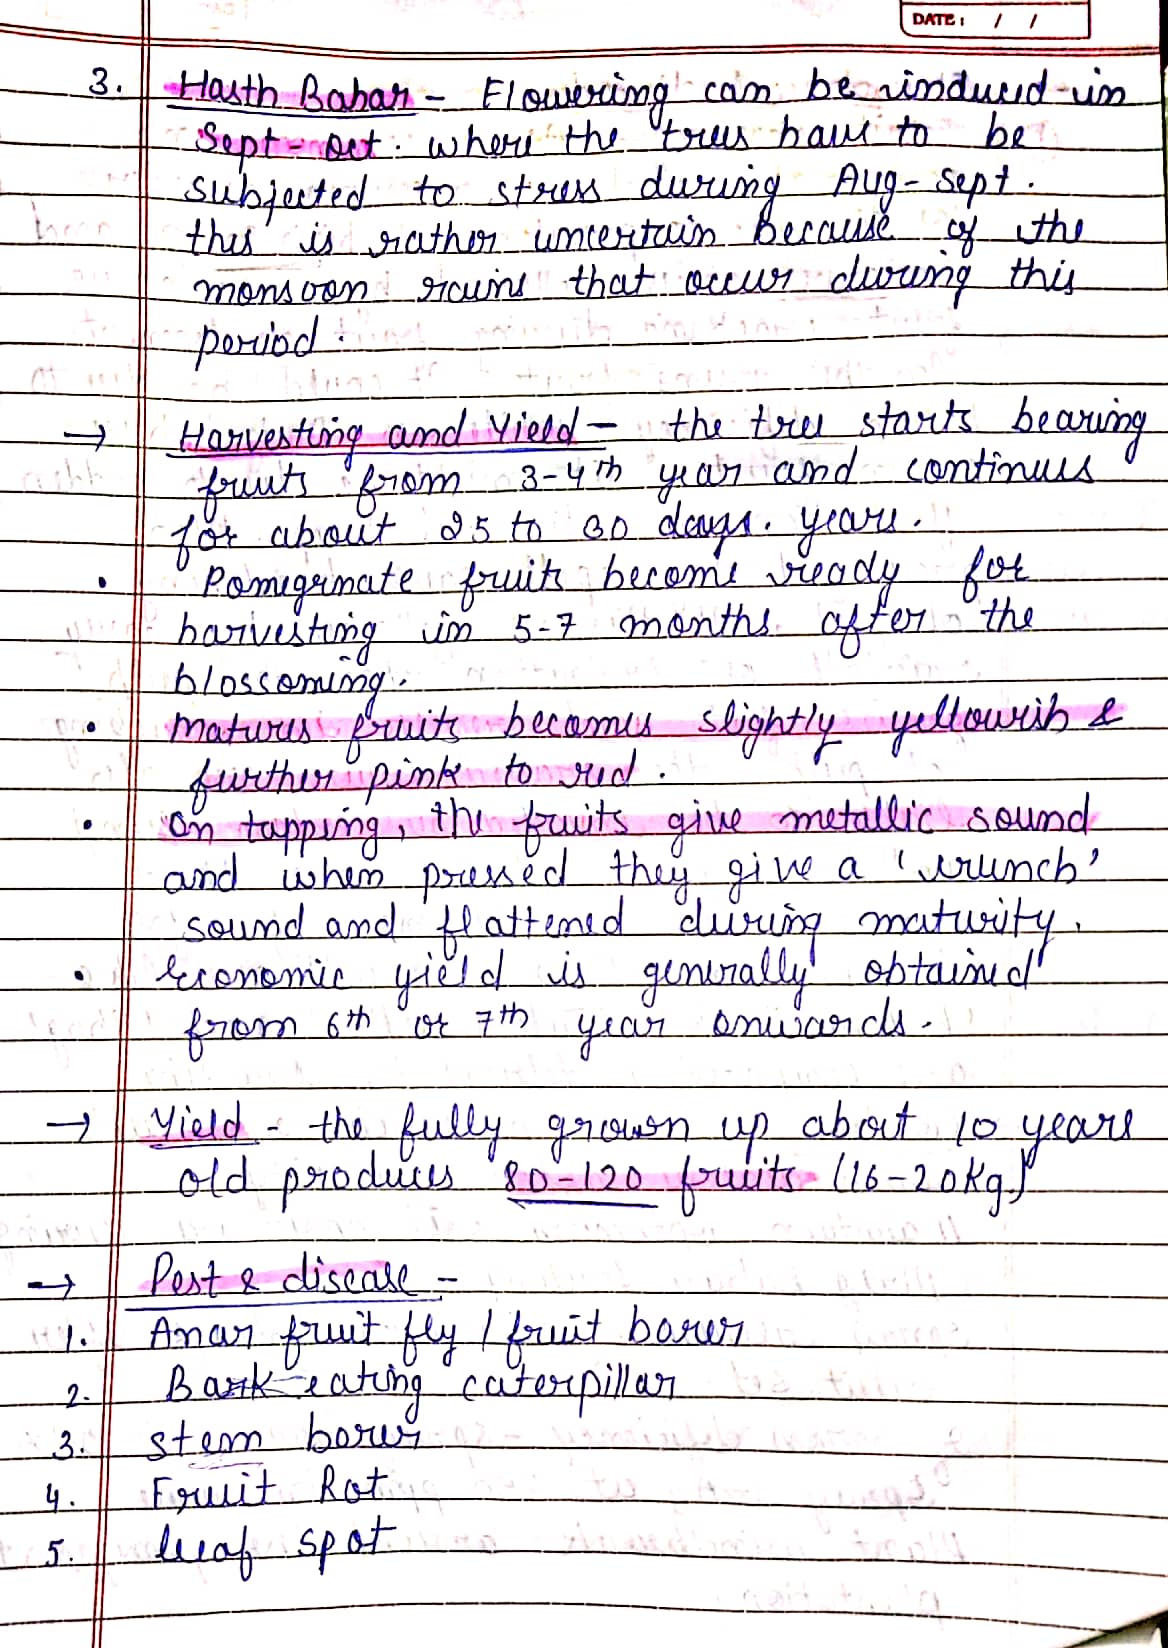 DATE: / /
3. Hasth Bahar - Flowering can be induced in
Sept - Oct. where the trees have to be
subjected to stress during Aug - Sept.
this is rather uncertain because of the
monsoon rains that occur during this
period.
→ Harvesting and Yield - the tree starts bearing
fruits from 3-4th year and continues
for about 25 to 30 days. years.
• Pomegrnate fruits become ready for
harvesting in 5-7 months after the
blossoming.
• Matures fruits becomes slightly yellowish &
further pink to red.
• On tapping, the fruits give metallic sound
and when pressed they give a 'crunch'
sound and flattened during maturity.
• Economic yield is generally obtained
from 6th or 7th year onwards.
→ Yield - the fully grown up about 10 years
old produces 80-120 fruits (16-20kg)
→ Pest & disease -
1. Anar fruit fly / fruit borer
2. Bark eating caterpillar
3. stem borer
4. Fruit Rot
5. leaf spot